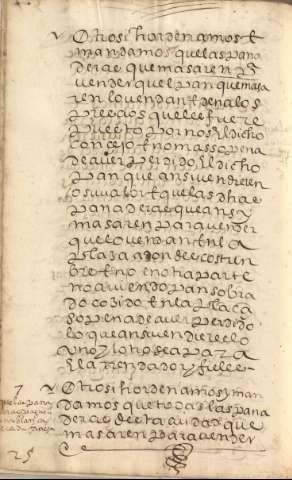 Otrosi hordenamos e
mandamos que las pana
deras que masaren pa
vender que el pan que masa
ren lo vendan e den a los
precios que les fuere
puesto por nos el dicho
concejo e no mas so pena
de aver perdido el dicho
pan que ansi vendieren
o su valor e que las dhas
panaderas que ansy
masaren para vender
que lo vendan en la
plaza a donde es costun
bre e no en otra parte
no aviendo pan sobra
do cozido en la plaça
so pena de aver perdido
lo que ansi vendiere lo
uno y lo otro sea para
el arrendador y fieles
7 Otrosi hordenamos y man
damos que todas las pana
deras desta ciudad que
masaren para vender
25